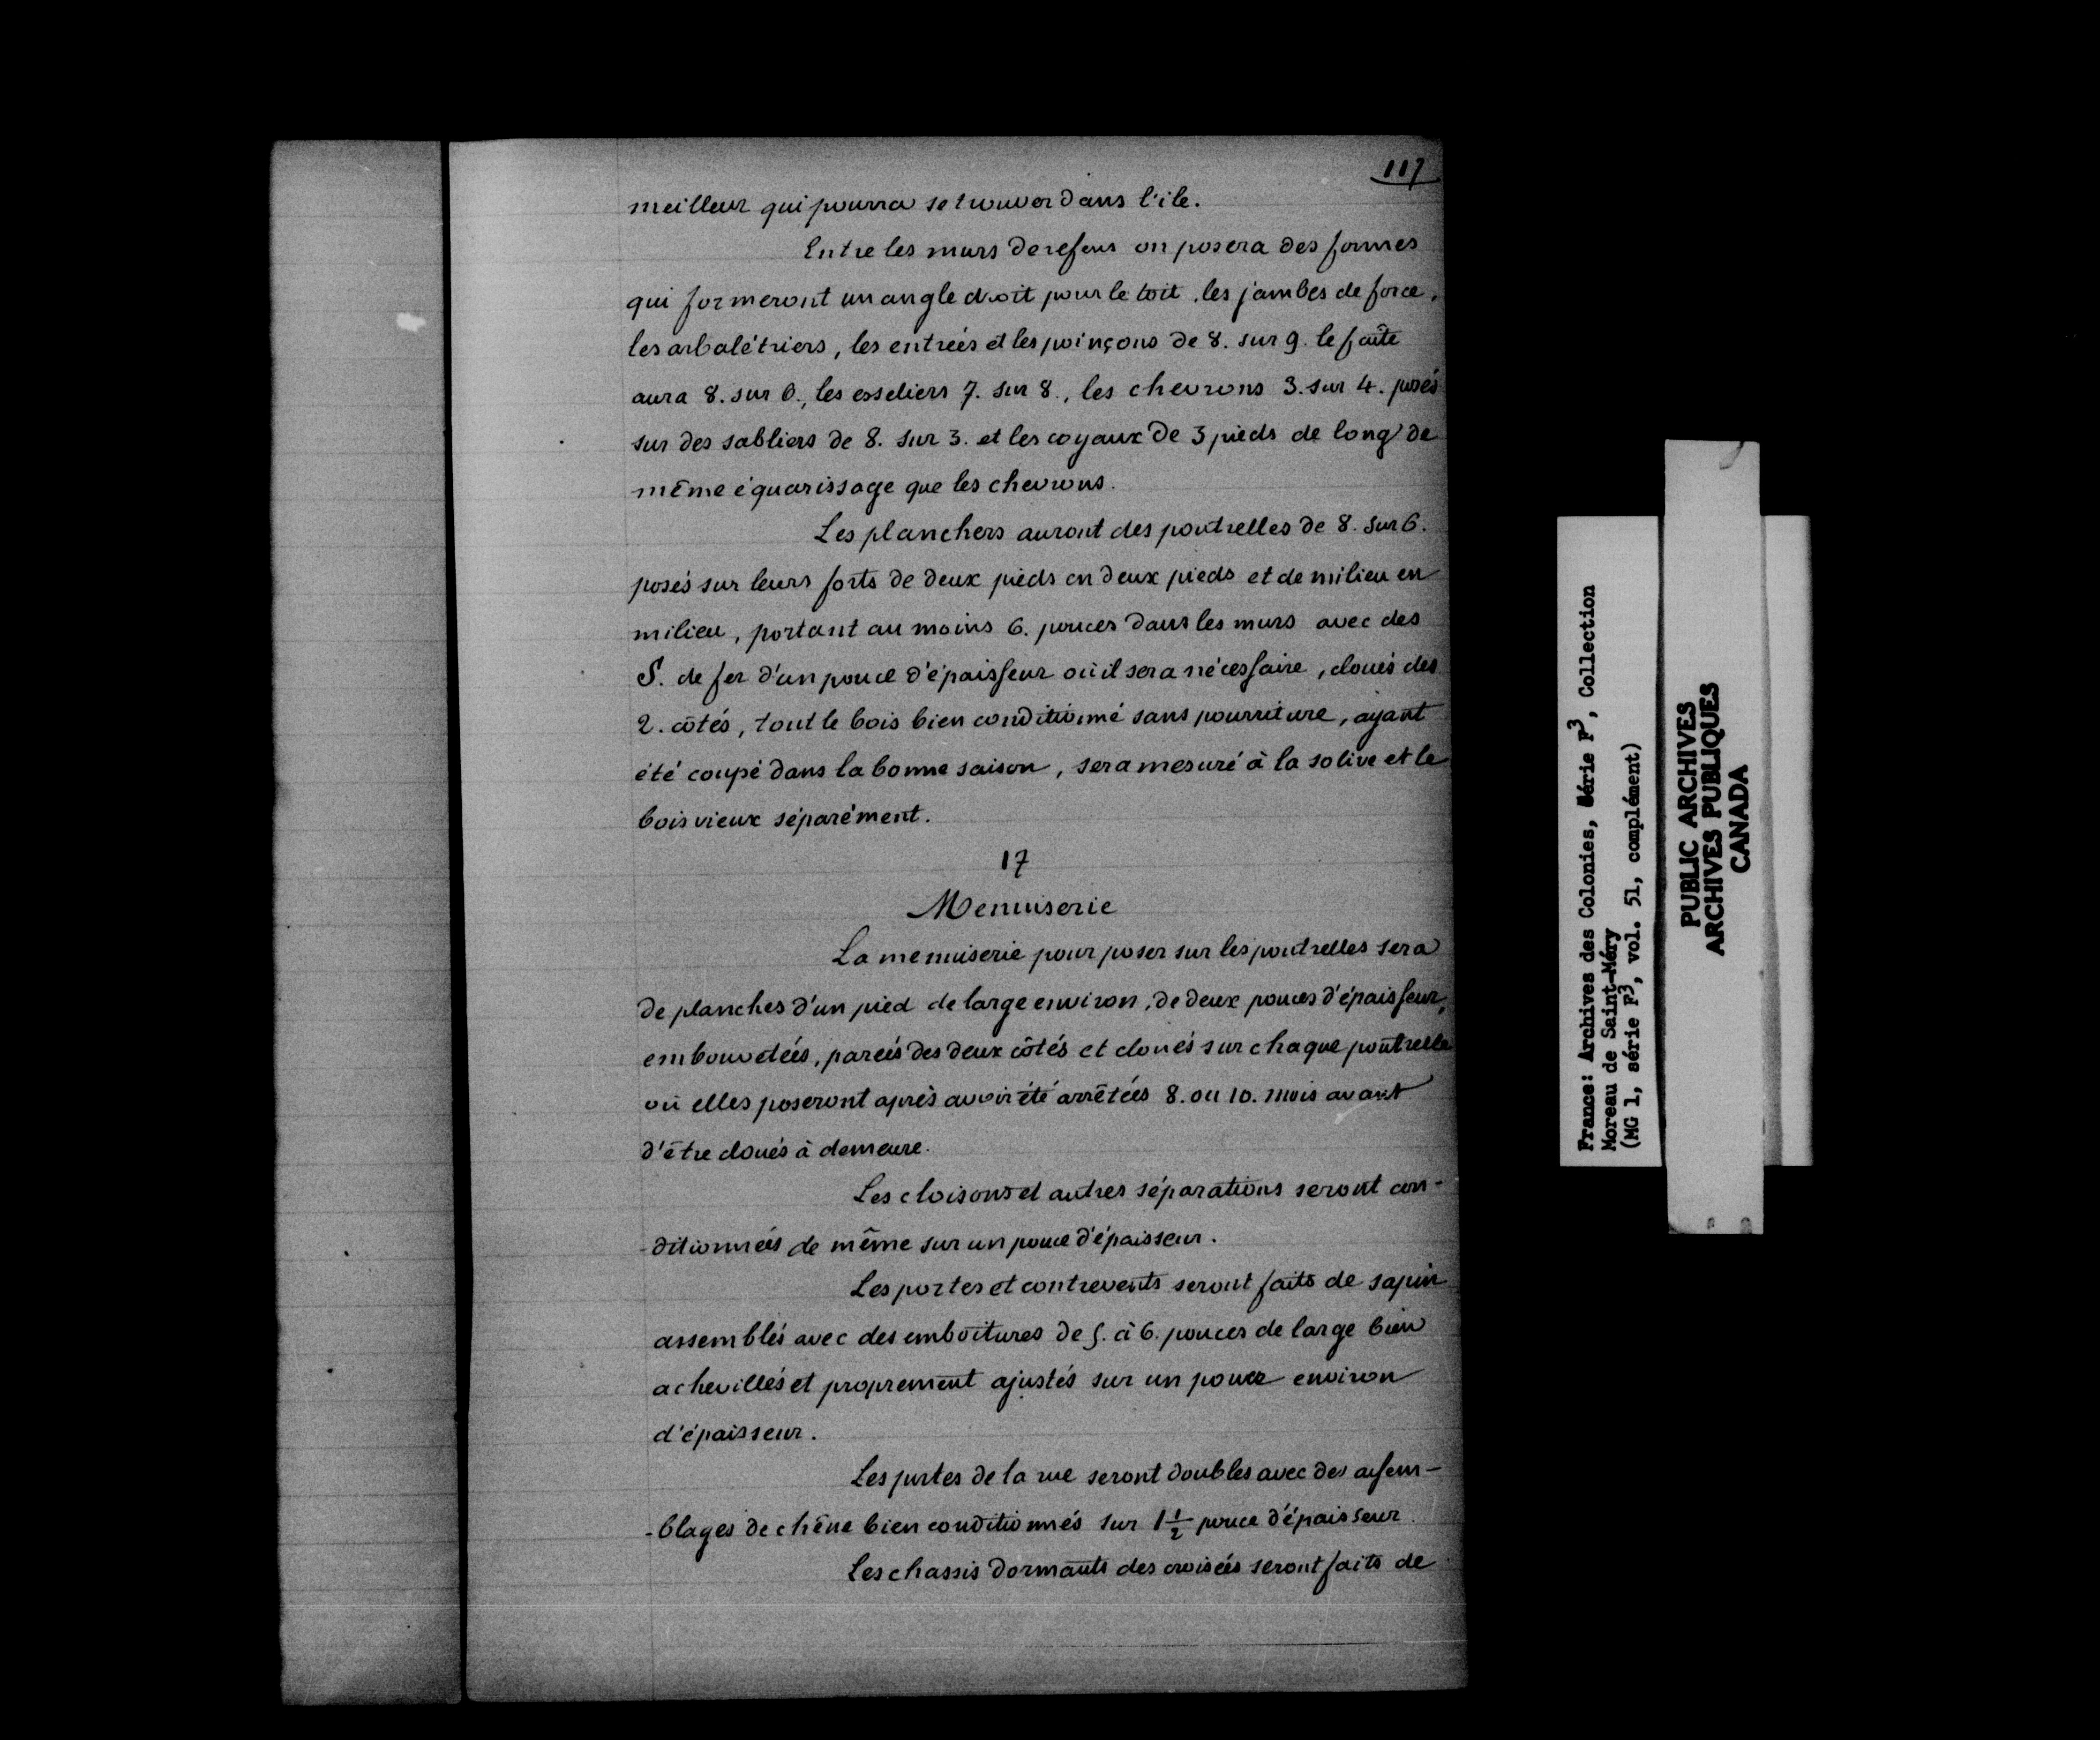 117
meilleur qui pourra se trouver dans l'ile.
Entre les murs de refens on posera des formes
qui formeront un angle droit pour le toit, les jambes de force,
les arbalétriers, les entreés et les poinçons de 8. sur 9. le faîte
aura 8. sur 6., les esseliers 7. sur 8., les chevrons 3. sur 4. posés
sur des sabliers de 8. sur 3. et les coyaux de 3 pieds de long de
même équarissage que les chevrons.
Les planchers auront des poutrelles de 8. sur 6.
posés sur leurs forts de deux pieds en deux pieds et de milieu en
milieu, portant au moins 6. pouces dans les murs avec des
S. de fer d'un pouce d'épaisseur où il sera nécessaire, cloués des
2. côtés, tout le bois bien conditionné sans pourriture, ayant
été coupé dans la bonne saison, sera mesuré à la solive et le
bois vieux séparément.
17
Menuiserie
La menuiserie pour poser sur les poutrelles sera
de planches d'un pied de large environ, de deux pouces d'épaisseur,
embouvetées, pareés des deux côtés et cloués sur chaque poutrelle
où elles poseront après avoir été arrêtées 8. ou 10. mois avant
d'être cloués à demeure.
Les cloisons et autres séparations seront con-
-ditionneés de même sur un pouce d'épaisseur.
Les portes et contrevents seront faits de sapin
assemblés avec des emboîtures de 5. à 6. pouces de large bien
achevillés et proprement ajustés sur un pouce environ
d'épaisseur.
Les portes de la rue seront doubles avec des assem-
-blages de chêne bien conditionnés sur 1 1/2 pouce d'épaisseur.
Les chassis dormants des croisées seront faits de
France: Archives des Colonies, Série F3, Collection
Moreau de Saint-Méry
(MG 1, série F3, vol. 51, complément)
PUBLIC ARCHIVES
ARCHIVES PUBLIQUES
CANADA